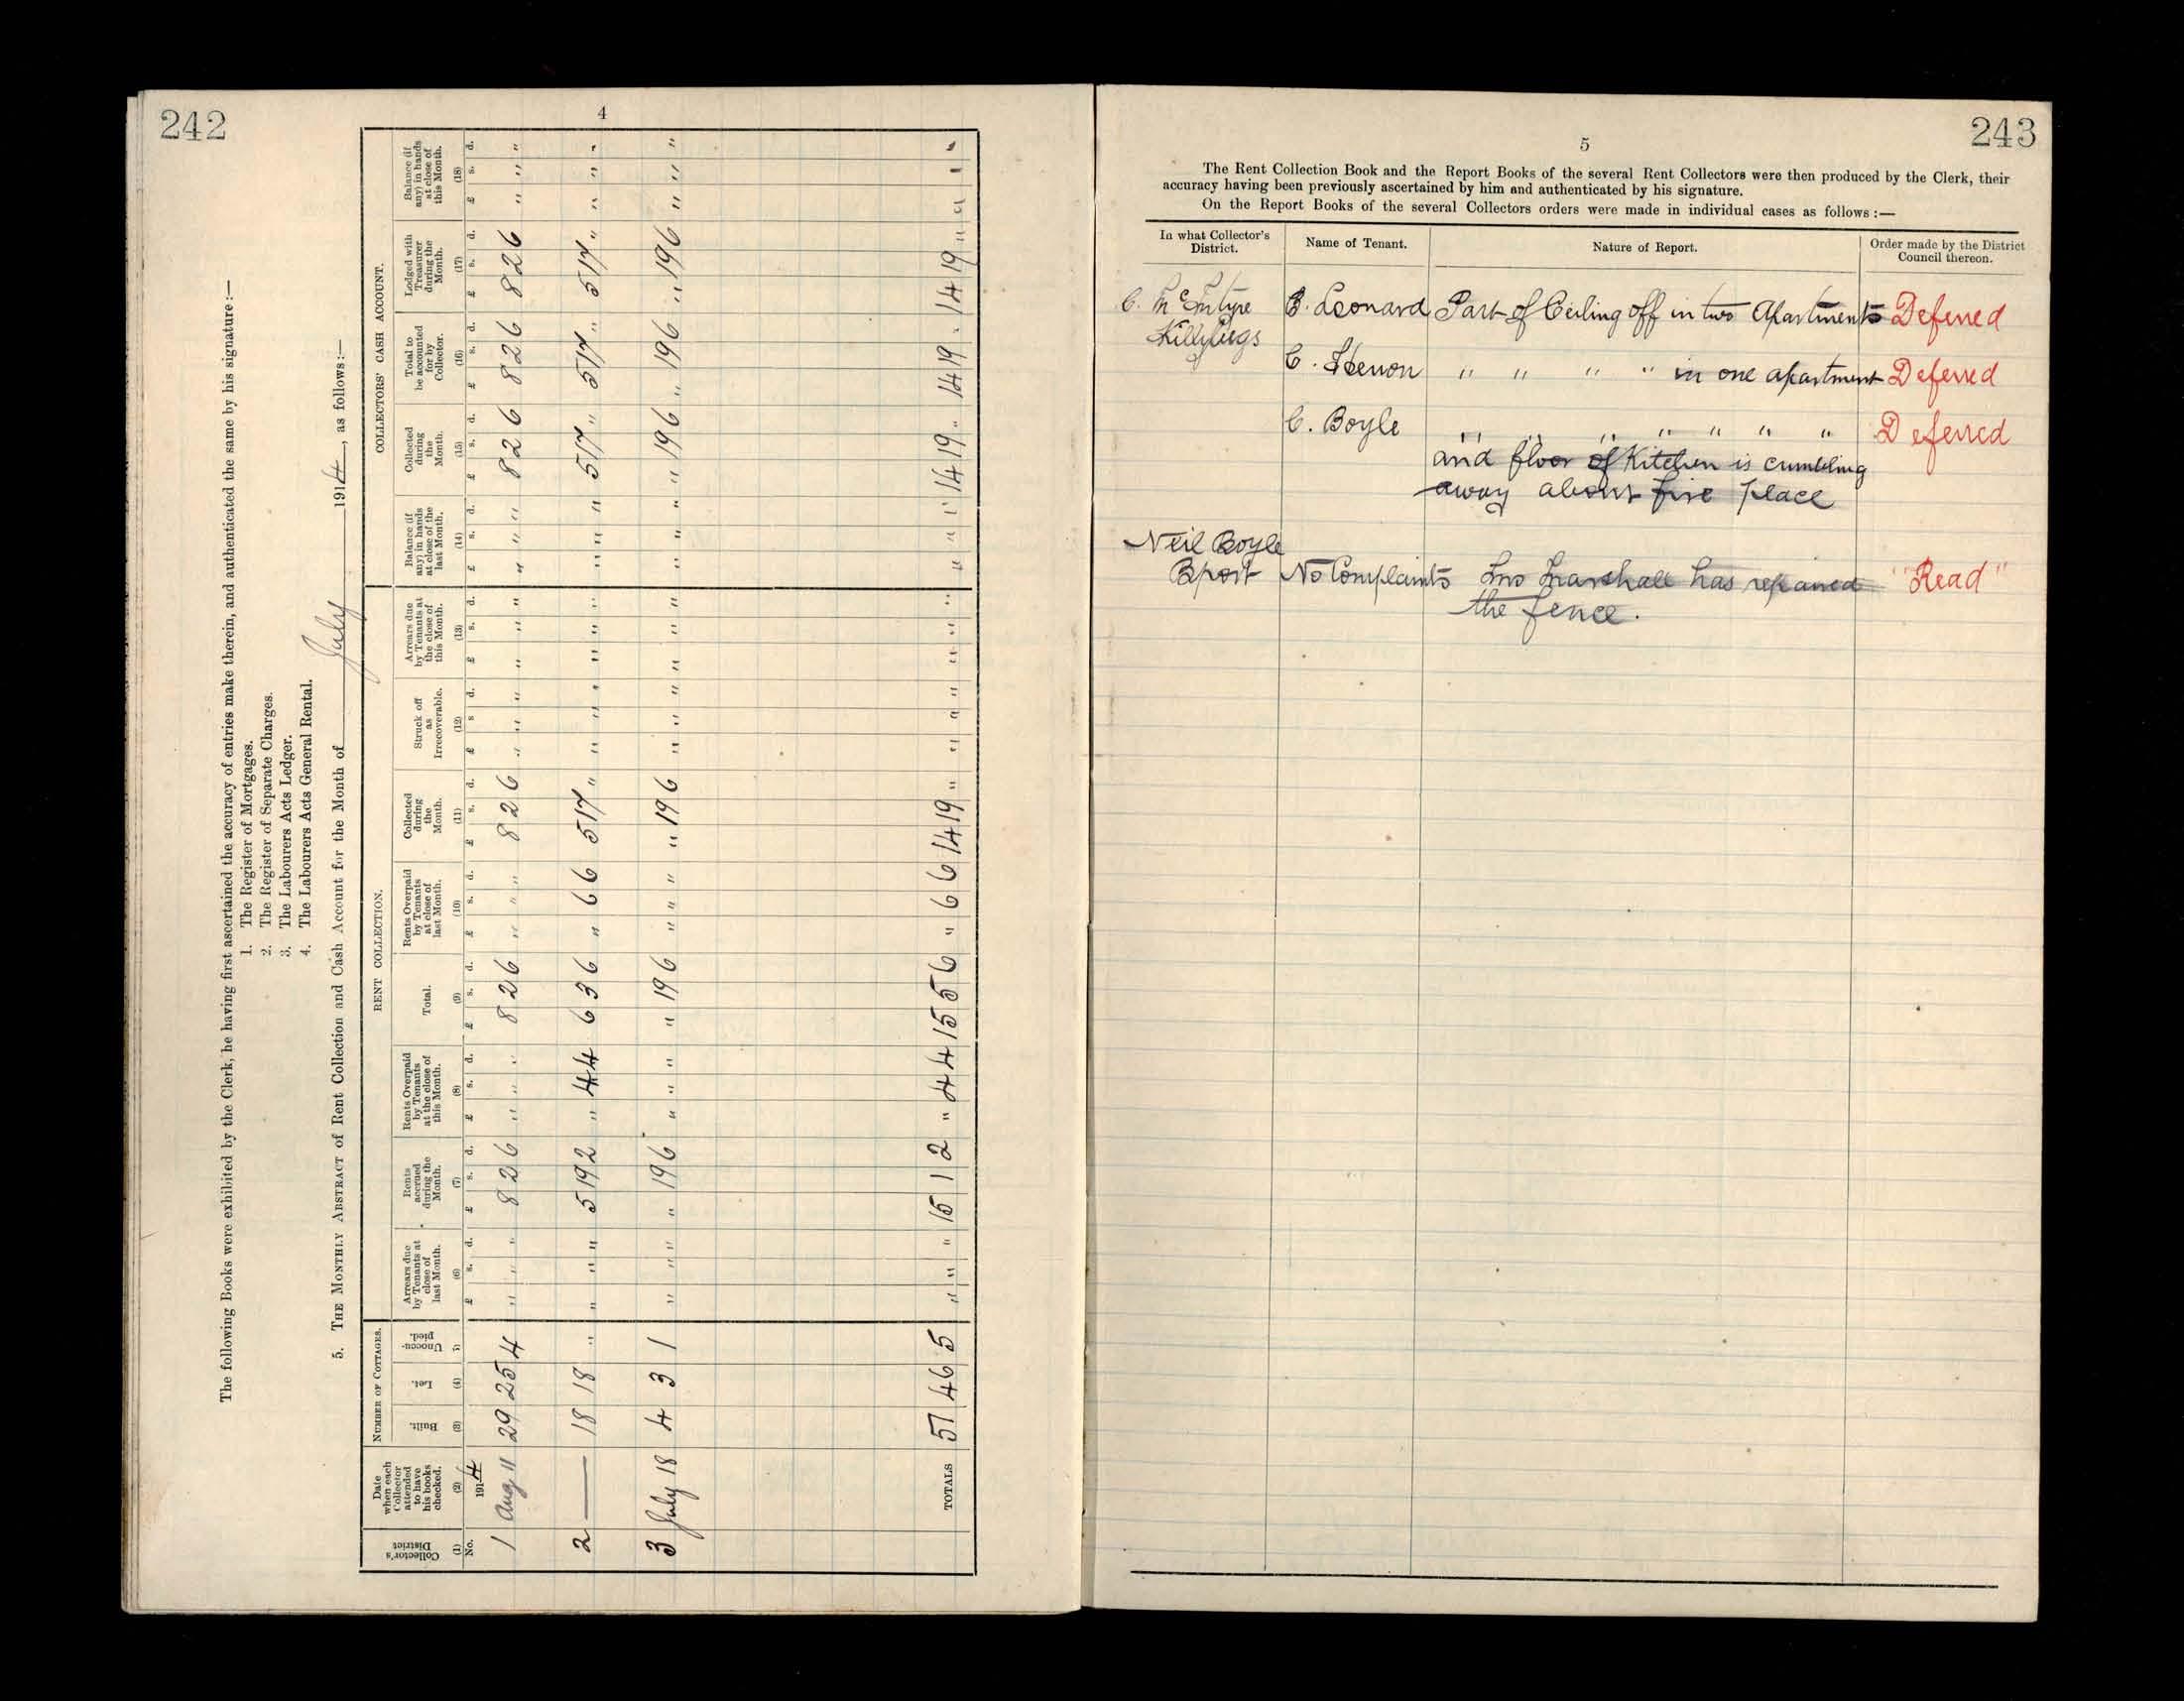 242
4
The following Books were exhibited by the Clerk, he having first ascertained the accuracy of entries make therein, and authenticated the same by his signature :—
1. The Register of Mortgages.
2. The Register of Separate Charges.
3. The Labourers Acts Ledger.
4. The Labourers Acts General Rental.
5. THE MONTHLY ABSTRACT of Rent Collection and Cash Account for the Month of July 1914, as follows:—
NUMBER OF COTTAGES. RENT COLLECTION. COLLECTORS' CASH ACCOUNT.
Collector's District (1) No.
Date when each Collector attended to have his books checked. (2) 1914
Built. (3)
Let. (4)
Unoccupied. (5)
Arrears due by Tenants at close of last Month. (6) £ s. d.
Rents accrued during the Month. (7) £ s. d.
Rents Overpaid by Tenants at the close of this Month. (8) £ s. d.
Total. (9) £ s. d.
Rents Overpaid by Tenants at close of last Month. (10) £ s. d.
Collected during the Month. (11) £ s. d.
Struck off as Irrecoverable. (12) £ s d.
Arrears due by Tenants at the close of this Month. (13) £ s. d.
Balance (if any) in hands at close of the last Month. (14) £ s. d.
Collected during the Month. (15) £ s. d.
Total to be accounted for by Collector. (16) £ s. d.
Lodged with Treasurer during the Month. (17) £ s. d.
Balance (if any) in hands at close of this Month. (18) £ s. d.
1 Aug 11 29 25 4 " " " 8 2 6 " " " 8 2 6 " " " 8 2 6 " " " " " " " " " 8 2 6 8 2 6 8 2 6 " " "
2 — 18 18 " " " " 5 19 2 " 4 4 6 3 6 " 6 6 5 17 " " " " " " " " " " 5 17 " 5 17 " 5 17 " " " "
3 July 18 4 3 1 " " " " 19 6 " " " " 19 6 " " " " 19 6 " " " " " " " " " " 19 6 " 19 6 " 19 6 " " "
TOTALS 51 46 5 " " " 15 1 2 " 4 4 15 5 6 " 6 6 14 19 " " " " " " " " " " 14 19 " 14 19 " 14 19 " " " "
243
5
The Rent Collection Book and the Report Books of the several Rent Collectors were then produced by the Clerk, their
accuracy having been previously ascertained by him and authenticated by his signature.
On the Report Books of the several Collectors orders were made in individual cases as follows :—
In what Collector's District. Name of Tenant. Nature of Report. Order made by the District Council thereon.
C. McEntyre B. Leonard Part of Ceiling off in two Apartments Deferred
Killybegs
C. " " " " in one apartment Deferred
C. Boyle " " " " " " " Deferred
and floor of Kitchen is crumbling
away about fire place
Neil Boyle
Bport No Complaints Marshall has repaired "Read"
the fence.